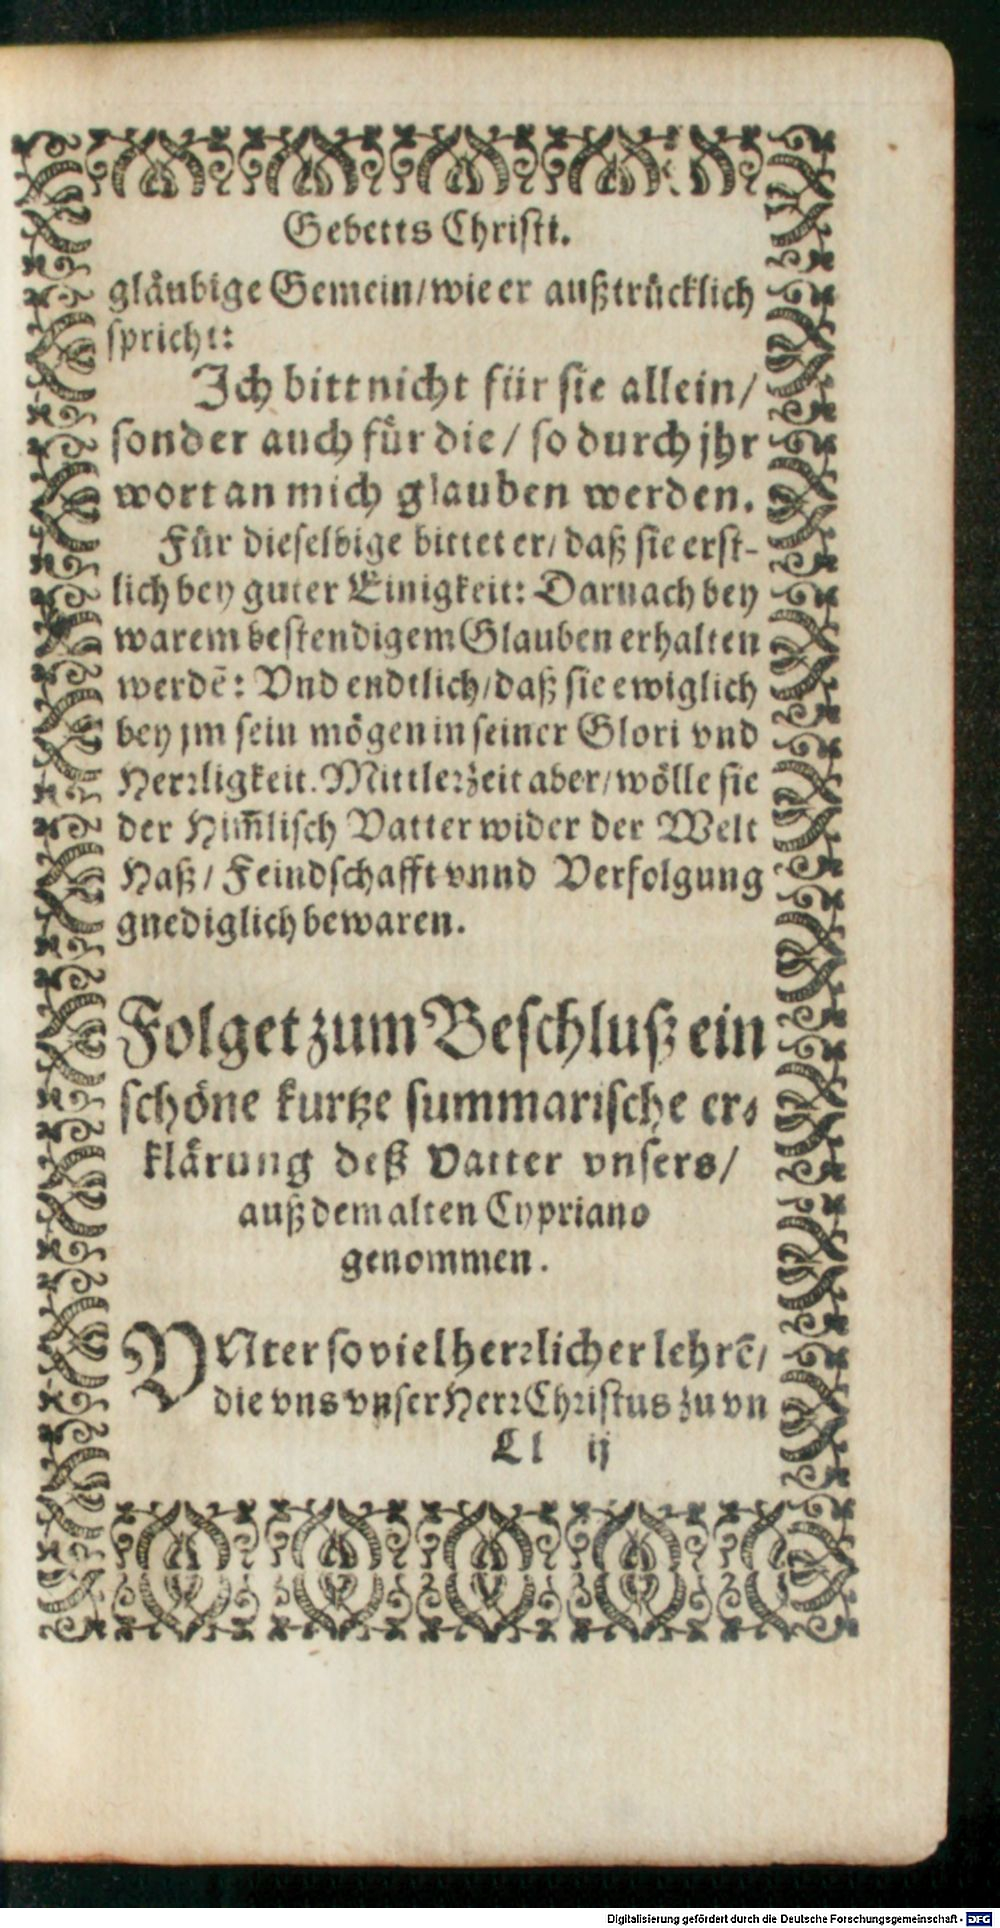 Gebetts Christi.
gläubige Gemein/wie er außtrücklich
spricht:
Ich bitt nicht für sie allein/
sonder auch für die/ so durch jhr
wort an mich glauben werden.
Für dieselbige bittet er/ daß sie erst-
lich bey guter Einigkeit: Darnach bey
warem bestendigem Glauben erhalten
werdē: Vnd endtlich/daß sie ewiglich
bey jm sein mögen in seiner Glori vnd
Herrligkeit. Mittlerzeit aber/wölle sie
der Him̄lisch Vatter wider der Welt
Haß/ Feindschafft vnnd Verfolgung
gnediglich bewaren.
Folget zum Beschluß ein
schöne kurtze summarische er-
klärung deß Vatter vnsers/
auß dem alten Cypriano
genommen.
VNter so viel herrlicher lehrē/
die vns vnser Herr Christus zu vn
Ll ij
Digitalisierung gefördert durch die Deutsche Forschungsgemeinschaft - DFG